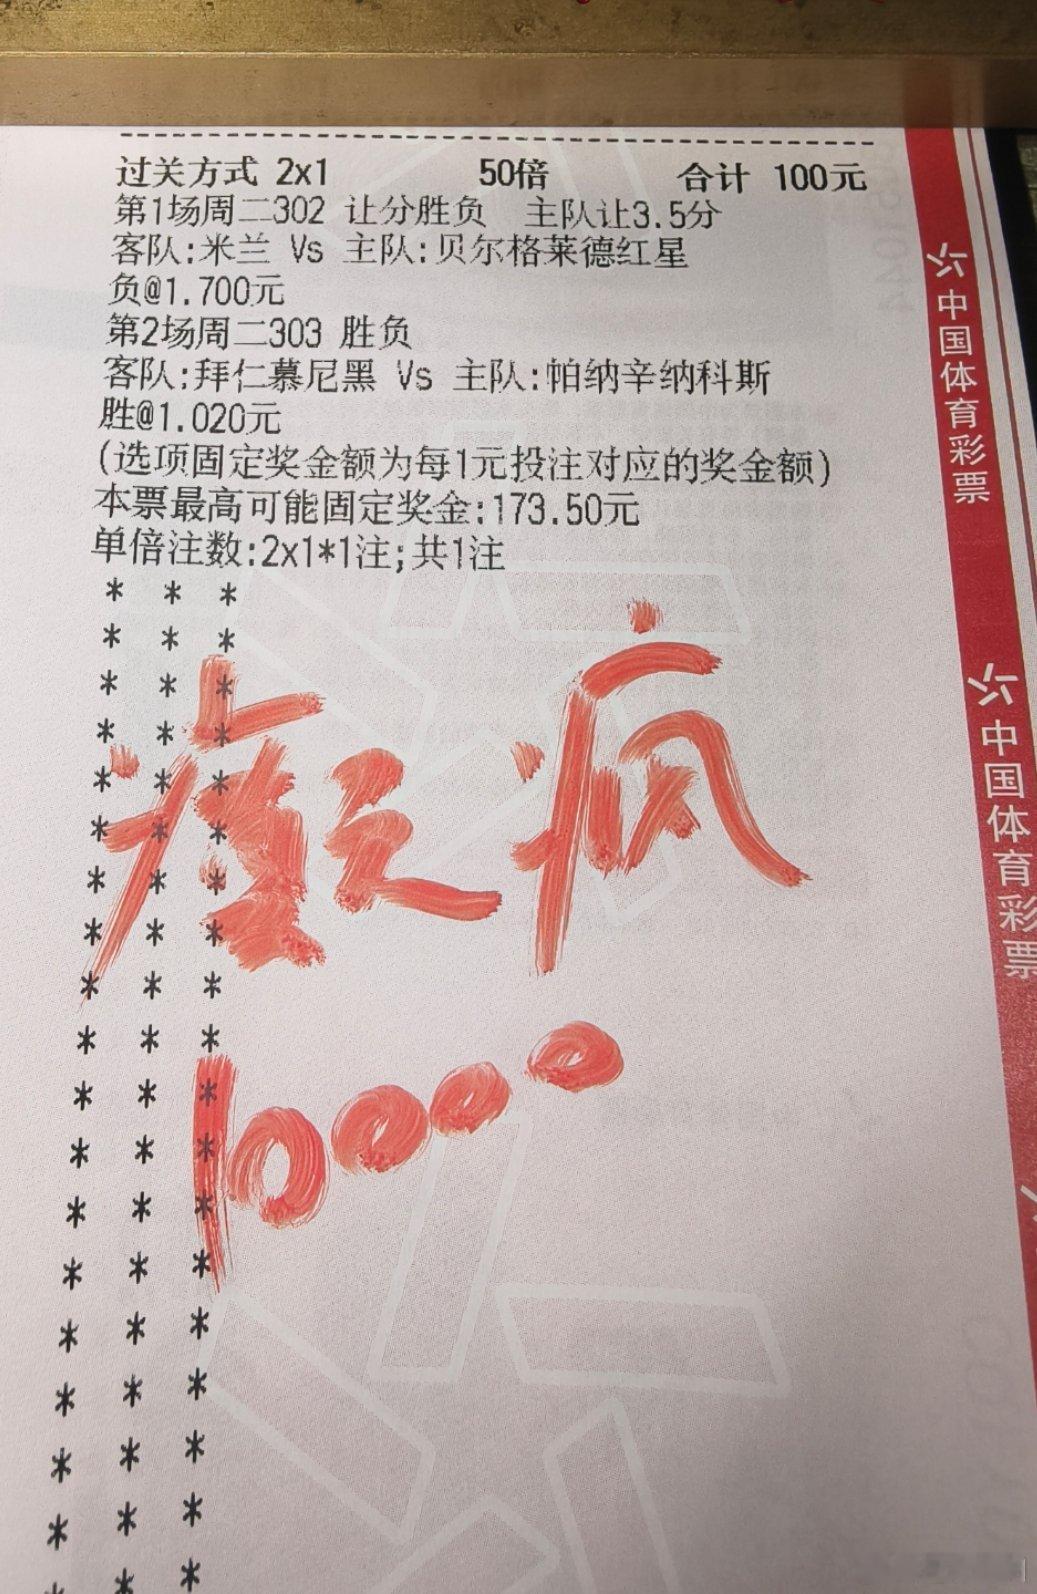 过关方式 2x1 50倍 合计 100元
第1场周二302 让分胜负 主队让3.5分
客队:米兰 Vs 主队:贝尔格莱德红星
负@1.700元
第2场周二303 胜负
客队:拜仁慕尼黑 Vs 主队:帕纳辛纳科斯
胜@1.020元
(选项固定奖金额为每1元投注对应的奖金额)
本票最高可能固定奖金:173.50元
单倍注数:2x1*1注;共1注
* * *
* * *
* * *
* * *
* * *
* * *
* * *
* * *
* * *
* * *
* * *
* * *
* * *
* * *
* * *
* * *
* * *
* * *
* * *
* * *
中国体育彩票
中国体育彩票